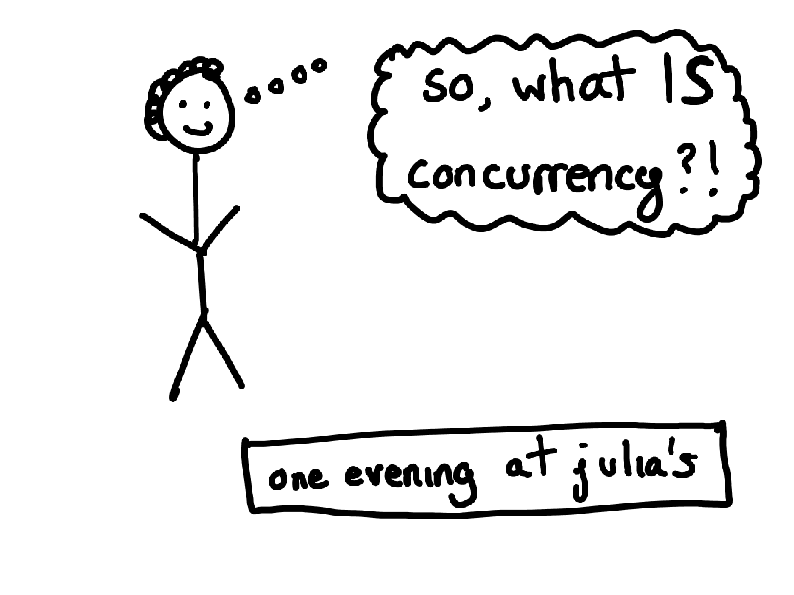 so, what IS
concurrency?!
one evening at julia's